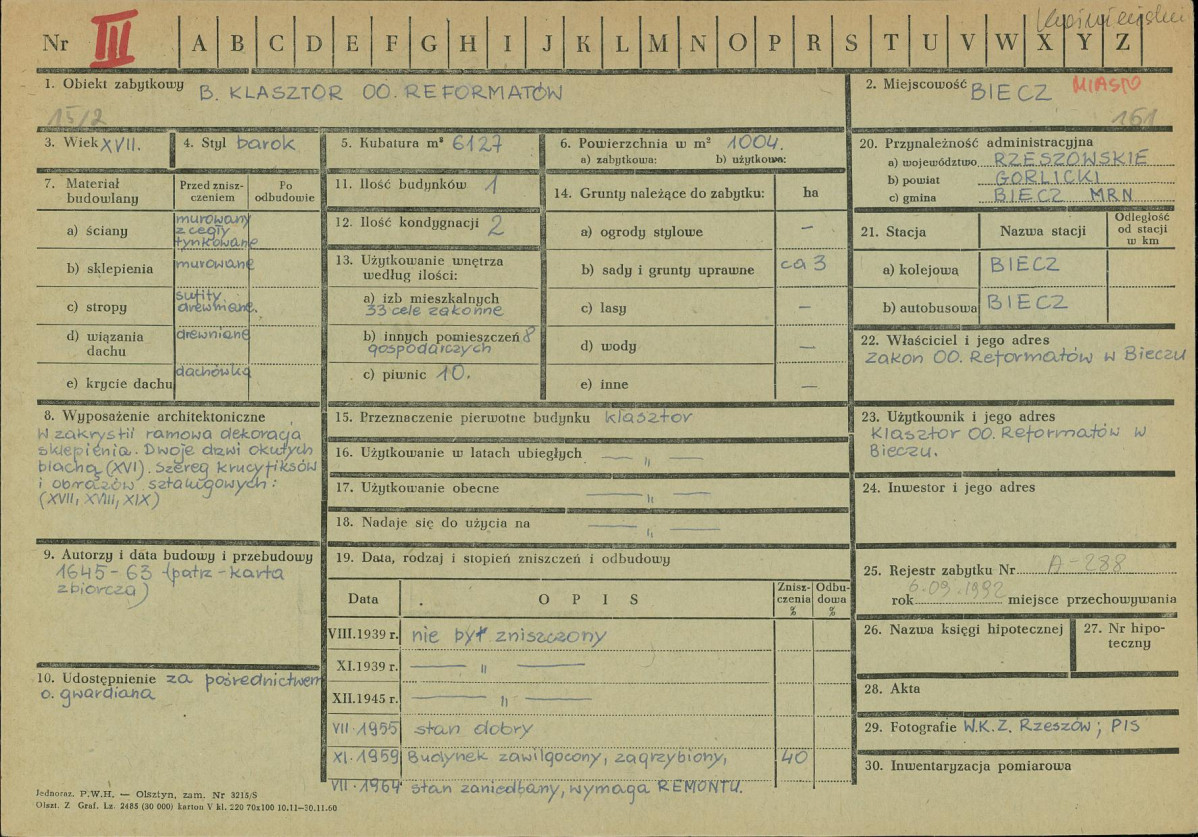 Nr III A B C D E F G H I J K L M N O P R S T U V W X Y Z
1. Obiekt zabytkowy B. KLASZTOR OO. REFORMATÓW
15/2
2. Miejscowość BIECZ MIASTO
161
3. Wiek XVII.
4. Styl barok
5. Kubatura m³ 6127
6. Powierzchnia w m² 1004.
a) zabytkowa: b) użytkowa:
20. Przynależność administracyjna
a) województwo RZESZOWSKIE
b) powiat GORLICKI
c) gmina BIECZ MRN
7. Materiał budowlany
Przed zniszczeniem
Po odbudowie
a) ściany murowany z cegły tynkowane
b) sklepienia murowane
c) stropy sufity drewniane.
d) wiązania dachu drewniane
e) krycie dachu dachówka
11. Ilość budynków 1
12. Ilość kondygnacji 2
13. Użytkowanie wnętrza
według ilości:
a) izb mieszkalnych
33 cele zakonne
b) innych pomieszczeń 8
gospodarczych
c) piwnic 10.
14. Grunty należące do zabytku: ha
a) ogrody stylowe —
b) sady i grunty uprawne ca 3
c) lasy —
d) wody —
e) inne —
21. Stacja Nazwa stacji Odległość od stacji w km
a) kolejowa BIECZ
b) autobusowa BIECZ
22. Właściciel i jego adres
Zakon OO. Reformatów w Bieczu
8. Wyposażenie architektoniczne
W zakrystii ramowa dekoracja
sklepienia. Dwoje drzwi okutych
blachą (XVI). Szereg krucyfiksów
i obrazów sztalugowych:
(XVII, XVIII, XIX)
15. Przeznaczenie pierwotne budynku klasztor
16. Użytkowanie w latach ubiegłych — „ —
17. Użytkowanie obecne — „ —
18. Nadaje się do użycia na — „ —
23. Użytkownik i jego adres
Klasztor OO. Reformatów w
Bieczu.
24. Inwestor i jego adres
9. Autorzy i data budowy i przebudowy
1645-63 (patrz-karta
zbiorcza)
19. Data, rodzaj i stopień zniszczeń i odbudowy
Data OPIS Zniszczenia % Odbudowa %
VIII.1939 r. nie był zniszczony
XI.1939 r. — „ —
XII.1945 r. — „ —
VII.1955 stan dobry
XI.1959 Budynek zawilgocony, zagrzybiony, 40
VII.1964 stan zaniedbany, wymaga REMONTU.
25. Rejestr zabytku Nr A-288
rok 6.09.1992 miejsce przechowywania
26. Nazwa księgi hipotecznej
27. Nr hipoteczny
10. Udostępnienie za pośrednictwem
o. gwardiana
28. Akta
29. Fotografie W.K.Z. Rzeszów; PIS
30. Inwentaryzacja pomiarowa
Jednoraz. P.W.H. — Olsztyn, zam. Nr 3215/S
Olszt. Z. Graf. Lz. 2485 (30 000) karton V kl. 220 70x100 10.11—30.11.60